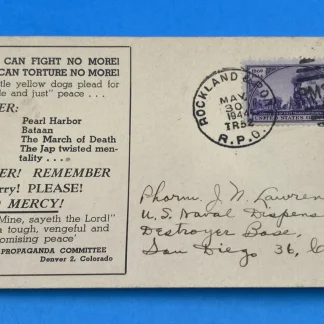 CAN FIGHT NO MORE!
CAN TORTURE NO MORE!
tle yellow dogs plead for
le and just" peace . . .
ER:
Pearl Harbor
Bataan
The March of Death
The Jap twisted men-
tality . . .
ER! REMEMBER
rry! PLEASE!
O MERCY!
Mine, sayeth the Lord!"
a tough, vengeful and
omising peace'
PROPAGANDA COMMITTEE
Denver 2, Colorado
ROCKLAND &
MAY
30
1944
TR52
R.P.O.
1869
UNITED STATES
Pharm. J. N. Lawren
U.S. Naval Dispens
Destroyer Base,
San Diego 36, Ca